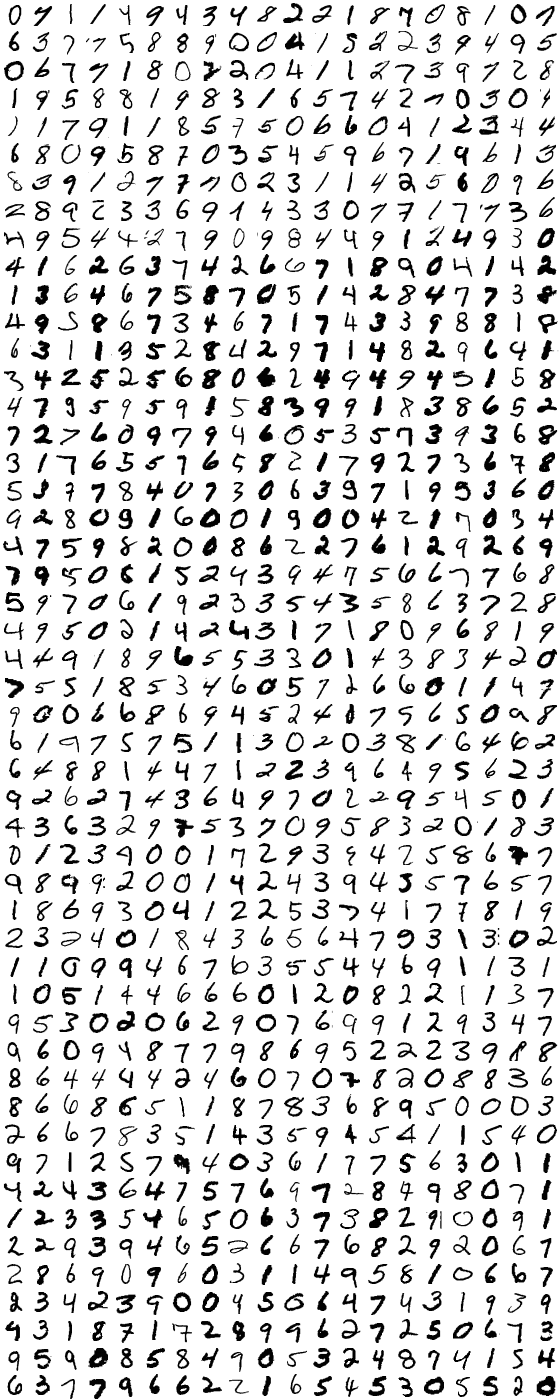 0 7 1 1 4 9 4 3 4 8 2 2 1 8 7 0 8 1 0 7
6 3 7 7 5 8 8 9 0 0 4 1 5 2 2 3 9 4 9 5
0 6 7 7 1 8 0 7 2 0 4 1 1 2 7 3 9 7 2 8
1 9 5 8 8 1 9 8 3 1 6 5 7 4 2 7 0 3 0 9
1 1 7 9 1 1 8 5 7 5 0 6 6 0 4 1 2 3 4 4
6 8 0 9 5 8 7 0 3 5 4 5 9 6 7 1 9 6 1 3
8 3 9 1 2 7 7 7 0 2 3 1 1 4 2 5 6 0 9 6
2 8 9 2 3 3 6 9 1 4 3 3 0 7 7 1 7 7 3 6
4 9 5 4 4 2 7 9 0 9 8 4 4 9 1 2 4 9 3 0
4 1 6 2 6 3 7 4 2 6 6 7 1 8 9 0 4 1 4 2
1 3 6 4 6 7 5 8 7 0 5 1 4 2 8 4 7 7 3 8
4 9 5 8 6 7 3 4 6 7 1 7 4 3 3 9 8 8 1 8
6 3 1 1 3 5 2 8 4 2 9 7 1 4 8 2 9 6 4 1
3 4 2 5 2 5 6 8 0 6 2 4 9 4 9 4 5 1 5 8
4 7 9 5 9 5 9 1 5 8 3 9 9 1 8 3 8 6 5 2
7 2 7 6 0 9 7 9 4 6 0 5 3 5 7 3 9 3 6 8
3 1 7 6 5 5 7 6 5 8 2 1 7 9 2 7 3 6 7 8
5 3 7 7 8 4 0 7 3 0 6 3 9 7 1 9 5 3 6 0
9 2 8 0 9 1 6 0 0 1 9 0 0 4 2 1 7 0 3 4
4 7 5 9 8 2 0 0 8 6 2 2 7 6 1 2 9 2 6 9
7 9 5 0 6 1 5 2 4 3 9 4 7 5 6 6 7 7 6 8
5 9 7 0 6 1 9 2 3 3 5 4 3 5 8 6 3 7 2 8
4 9 5 0 2 1 4 2 4 3 1 7 1 8 0 9 6 8 1 9
4 4 9 1 8 9 6 5 5 3 3 0 1 4 3 8 3 4 2 0
7 5 5 1 8 5 3 4 6 0 5 7 2 6 6 0 1 1 4 7
9 0 0 6 6 8 6 9 4 5 2 4 0 7 5 6 5 0 9 8
6 1 9 7 5 7 5 1 1 3 0 2 0 3 8 1 6 4 6 2
6 4 8 8 1 4 4 7 1 2 2 2 3 9 6 4 9 5 6 2 3
9 2 6 2 7 4 3 6 4 9 7 0 2 2 9 5 4 5 0 1
4 3 6 3 2 9 7 5 3 7 0 9 5 8 3 2 0 1 8 3
0 1 2 3 9 0 0 1 7 2 9 3 9 4 2 5 8 6 7 7
9 8 9 9 2 0 0 1 4 2 4 3 9 4 5 5 7 6 5 7
1 8 6 9 3 0 4 1 2 2 5 3 7 4 1 7 7 8 1 9
2 3 2 4 0 1 8 4 3 6 5 6 4 7 9 3 1 3 0 2
1 1 0 9 9 4 6 7 6 3 5 5 4 4 6 9 1 1 3 1
1 0 5 1 4 4 6 6 6 0 1 2 0 8 2 2 1 1 3 7
9 5 3 0 2 0 6 2 9 0 7 6 9 9 1 2 9 3 4 7
9 6 0 9 4 8 7 7 9 8 6 9 5 2 2 2 3 9 8 8
8 6 4 4 4 4 2 4 6 0 7 0 7 8 2 0 8 8 3 6
8 6 6 8 6 5 1 1 8 7 8 3 6 8 9 5 0 0 0 3
2 6 6 7 8 3 5 1 4 3 5 9 4 5 4 1 1 5 4 0
9 7 1 2 5 7 9 4 0 3 6 1 7 7 5 6 3 0 1 1
4 2 4 3 6 4 7 5 7 6 9 7 2 8 4 9 8 0 7 1
1 2 3 3 5 4 6 5 0 6 3 7 3 8 2 9 1 0 0 9 1
2 2 9 3 9 4 6 5 2 6 6 7 6 8 2 9 2 0 6 7
2 8 6 9 0 9 6 0 3 1 1 4 9 5 8 1 0 6 6 7
8 3 4 2 3 9 0 0 4 5 0 6 4 7 4 3 1 9 3 9
9 3 1 8 7 1 7 2 8 9 9 6 2 7 2 5 0 6 7 3
9 5 9 0 8 5 8 4 9 0 5 3 2 4 8 7 4 1 5 4
6 3 7 7 9 6 6 2 2 1 6 5 4 5 3 0 5 5 2 0